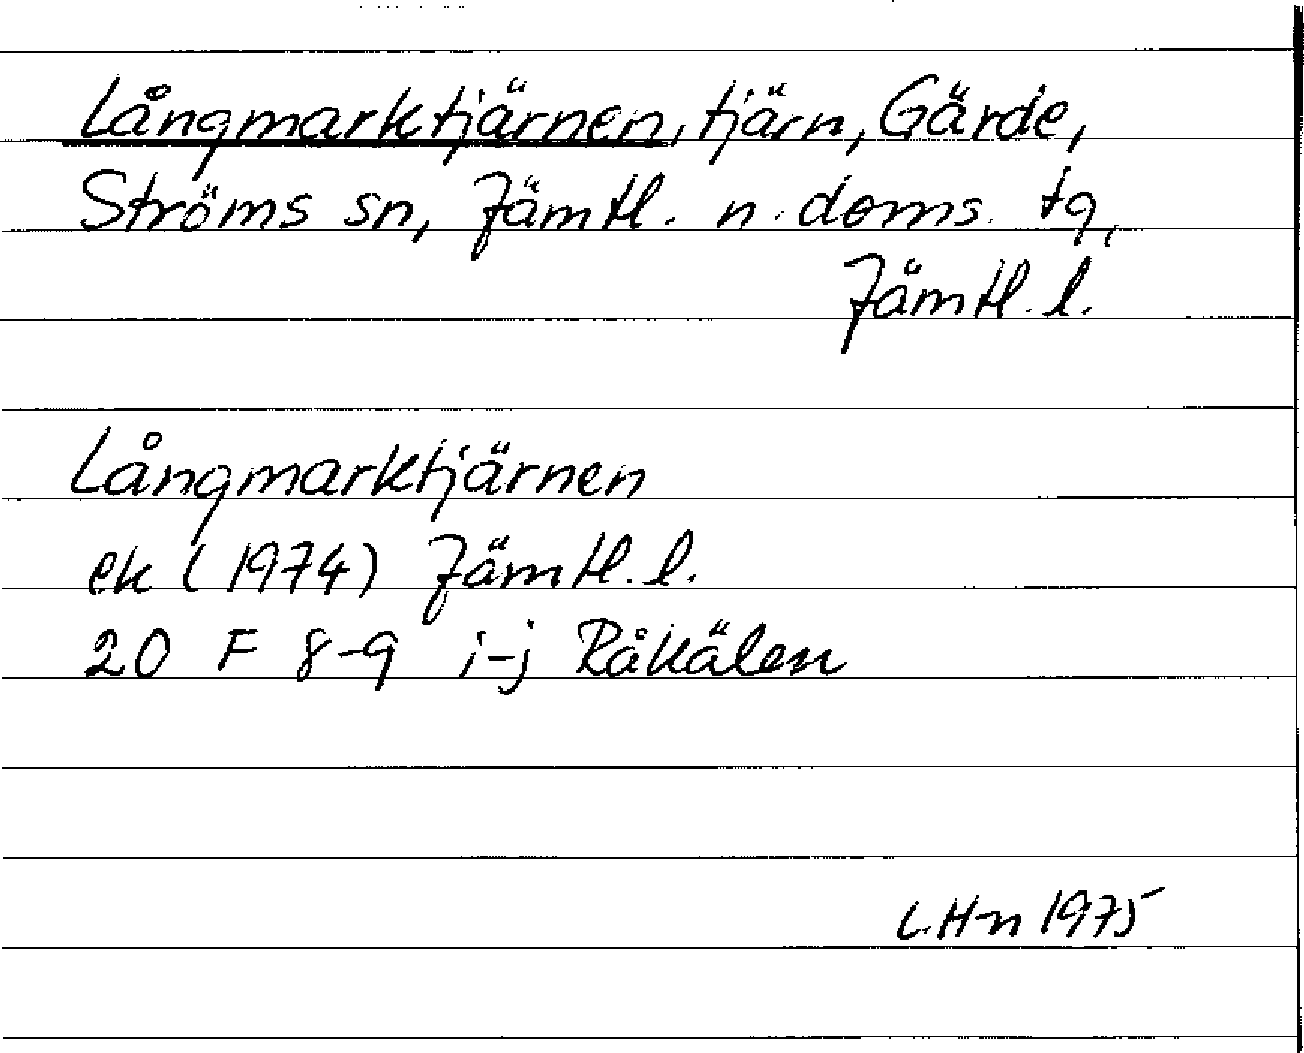 Långmarktjärnen, tjärn, Gärde,
Ströms sn, Jämtl. n. doms. tg,
Jämtl. l.
Långmarktjärnen
ek (1974) Jämtl. l.
20 F 8-9 i-j Råkälen
L.H-n 1975